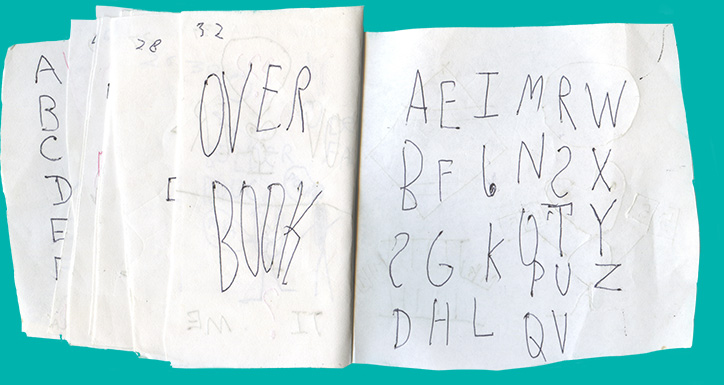 A
B
C
D
E
28
32
OVER
BOOK
A E I M R W
B F J N S X
S G K O T Y
P U Z
D H L Q V